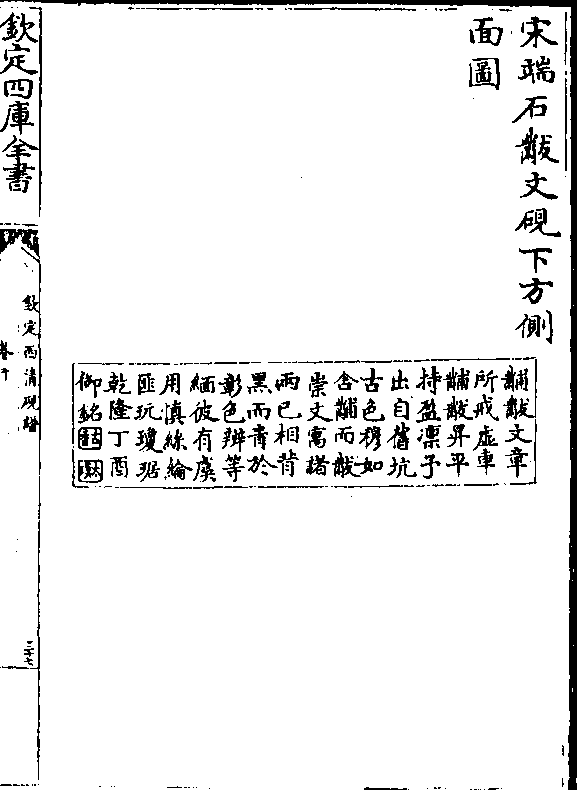 宋端石黻文硯下方側
面圖
黼黻文章
所戒虛車
黼黻昇平
持盈凜予
出自舊坑
古色穆如
含黼而黻
崇文寓諸
兩已相背
黑而青於
彰色辨等
緬彼有虞
用慎絲綸
匪玩瓊琚
乾隆丁酉
御銘
欽定四庫全書
欽定西清硯譜
卷十